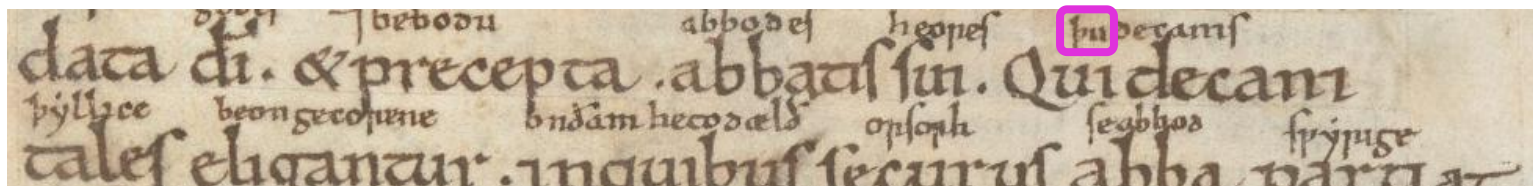 ⁊ bebodu abbodes heores þa decanis
data dī . & precepta . abbatis sui . Qui decani
þyllice beon gecorene on ðam he todælð orsorh se abbod
tales eligantur . inquibus securus abba partiat